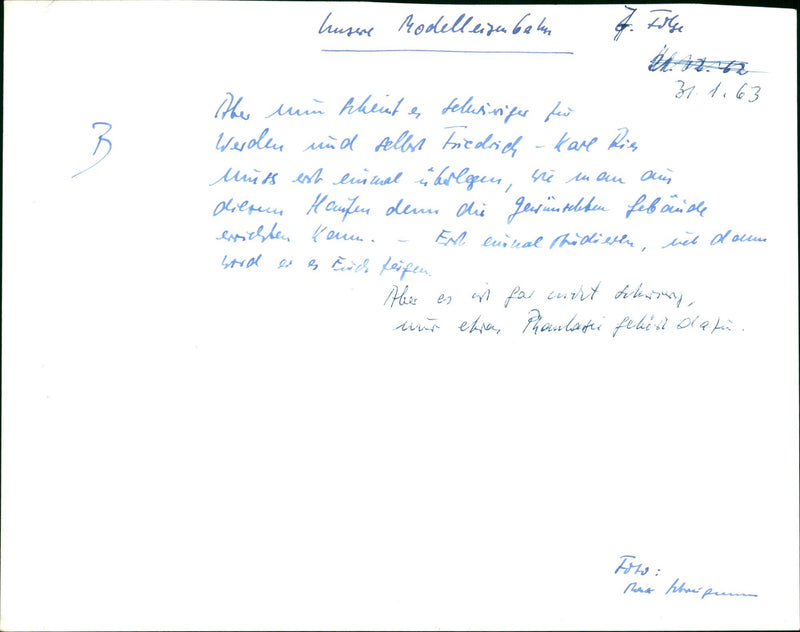 Unsere Modelleisenbahn
7. Folge
31.1.63
B
Aber nun scheint es schwieriger zu
werden und selbst Friedrich - Karl Ries
muss erst einmal überlegen, wie man aus
diesem Haufen denn die gewünschten Gebäude
errichten kann. - Erst einmal studieren, und dann
wird er es Euch zeigen.
Aber es ist gar nicht schwierig,
nur etwas Phantasie gehört dazu.
Foto: